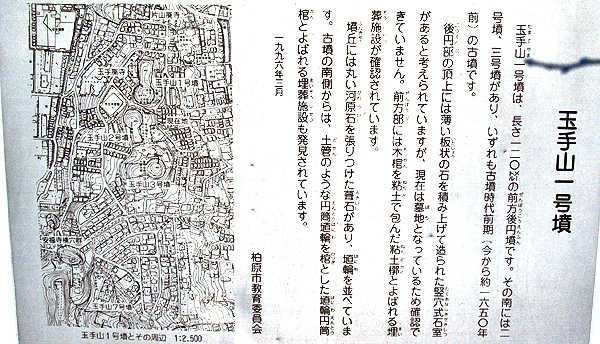 玉手山一号墳
玉手山一号墳は、長さ一一〇㍍の前方後円墳です。その南には二
号墳、三号墳があり、いずれも古墳時代前期（今から約一六五〇年
前）の古墳です。
後円部の頂上には薄い板状の石を積み上げて造られた竪穴式石室
があると考えられていますが、現在は墓地となっているため確認で
きていません。前方部には木棺を粘土で包んだ粘土槨とよばれる埋
葬施設が確認されています。
墳丘には丸い河原石を張りつけた葺石があり、埴輪を並べていま
す。古墳の南側からは、土管のような円筒埴輪を棺とした埴輪円筒
棺とよばれる埋葬施設も発見されています。
一九九六年三月
柏原市教育委員会
片山廃寺
玉手廃寺
玉手山1号墳
現在地
玉手山2号墳
玉手山3号墳
安福寺横穴群
玉手山7号墳
玉手山1号墳とその周辺 1:2,500